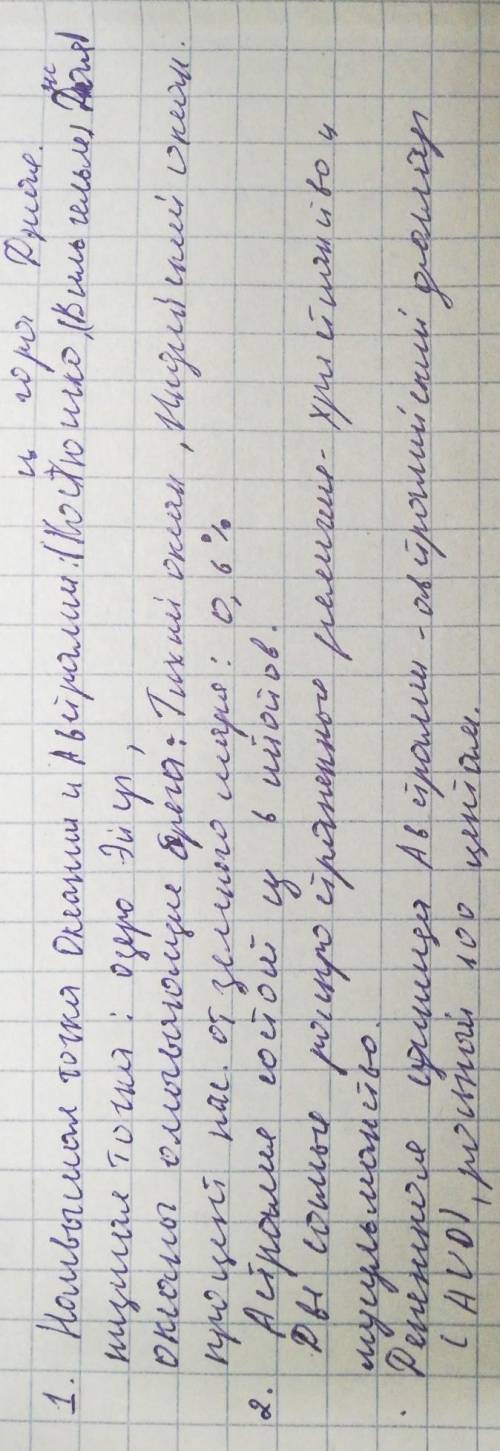 и гора Джая.
1. Наивысшая точка Океании и Австралии: (Костюшко, (Вильгельм, Джая)
низшая точка: озеро Эйр,
океаны омывающие брега: Тихий океан, Индийский океан.
процент нас. от земного шара: 0,6%
2. Астралия состоит из 6 штатов.
Две самые распространенные религии - христианство и
мусульманство.
Денежная единица Австралии - австралийский доллар
(AUD), равный 100 центам.